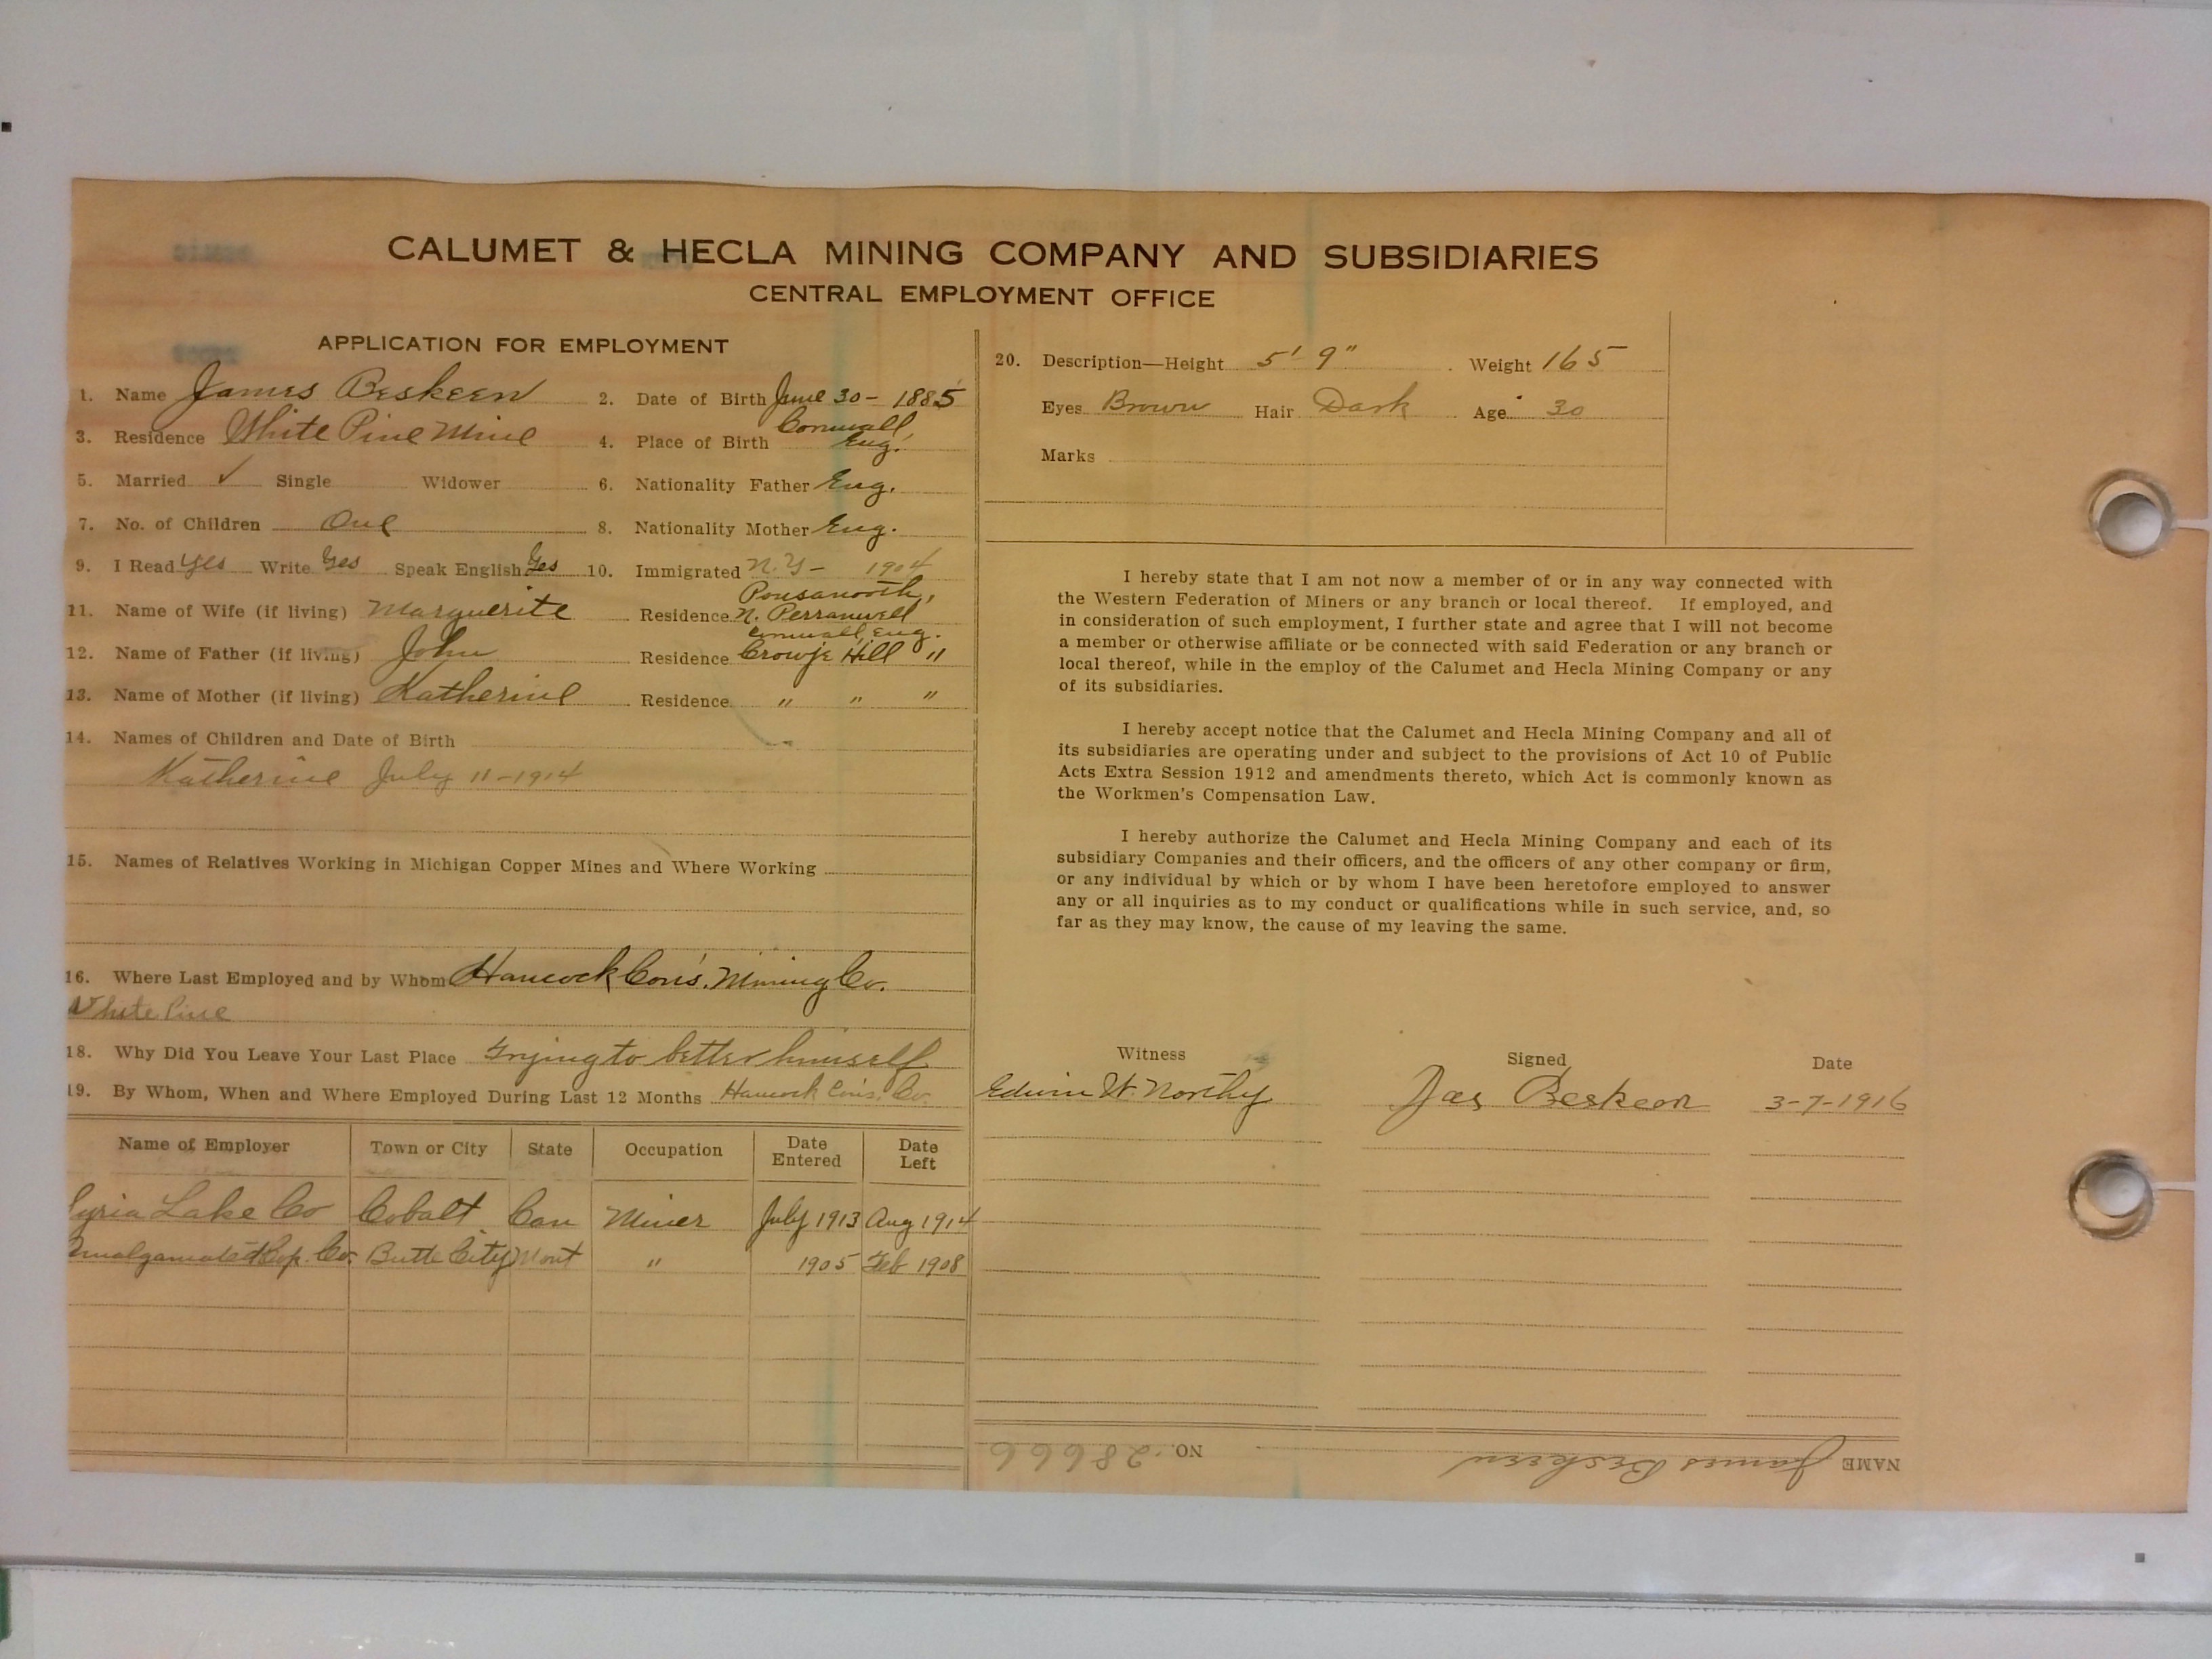 CALUMET & HECLA MINING COMPANY AND SUBSIDIARIES
CENTRAL EMPLOYMENT OFFICE
APPLICATION FOR EMPLOYMENT
1. Name James Beskeen 2. Date of Birth June 30 - 1885
3. Residence White Pine Mine 4. Place of Birth Cornwall, Eng.
5. Married ✓ Single Widower 6. Nationality Father Eng.
7. No. of Children One 8. Nationality Mother Eng.
9. I Read Yes Write Yes Speak English Yes 10. Immigrated N.Y - 1904
11. Name of Wife (if living) Marguerite Residence Ponsanooth, N. Perranwell Cornwall, Eng.
12. Name of Father (if living) John Residence Hill "
13. Name of Mother (if living) Katherine Residence " " "
14. Names of Children and Date of Birth
Katherine July 11-1914
15. Names of Relatives Working in Michigan Copper Mines and Where Working
16. Where Last Employed and by Whom Hancock Cons. Mining Co.
White Pine
18. Why Did You Leave Your Last Place Trying to better himself
19. By Whom, When and Where Employed During Last 12 Months Hancock Cons. Co.
Name of Employer Town or City State Occupation Date Entered Date Left
Lake Co Cobalt Can Miner July 1913 Aug 1914
Amalgamated Cop. Co. Butte City Mont " 1905 Feb 1908
20. Description—Height 5' 9" Weight 165
Eyes Brown Hair Dark Age 30
Marks
I hereby state that I am not now a member of or in any way connected with
the Western Federation of Miners or any branch or local thereof. If employed, and
in consideration of such employment, I further state and agree that I will not become
a member or otherwise affiliate or be connected with said Federation or any branch or
local thereof, while in the employ of the Calumet and Hecla Mining Company or any
of its subsidiaries.
I hereby accept notice that the Calumet and Hecla Mining Company and all of
its subsidiaries are operating under and subject to the provisions of Act 10 of Public
Acts Extra Session 1912 and amendments thereto, which Act is commonly known as
the Workmen's Compensation Law.
I hereby authorize the Calumet and Hecla Mining Company and each of its
subsidiary Companies and their officers, and the officers of any other company or firm,
or any individual by which or by whom I have been heretofore employed to answer
any or all inquiries as to my conduct or qualifications while in such service, and, so
far as they may know, the cause of my leaving the same.
Witness Signed Date
Edwin W. Northy Jas Beskeen 3-7-1916
NAME James Beskeen NO. 28666